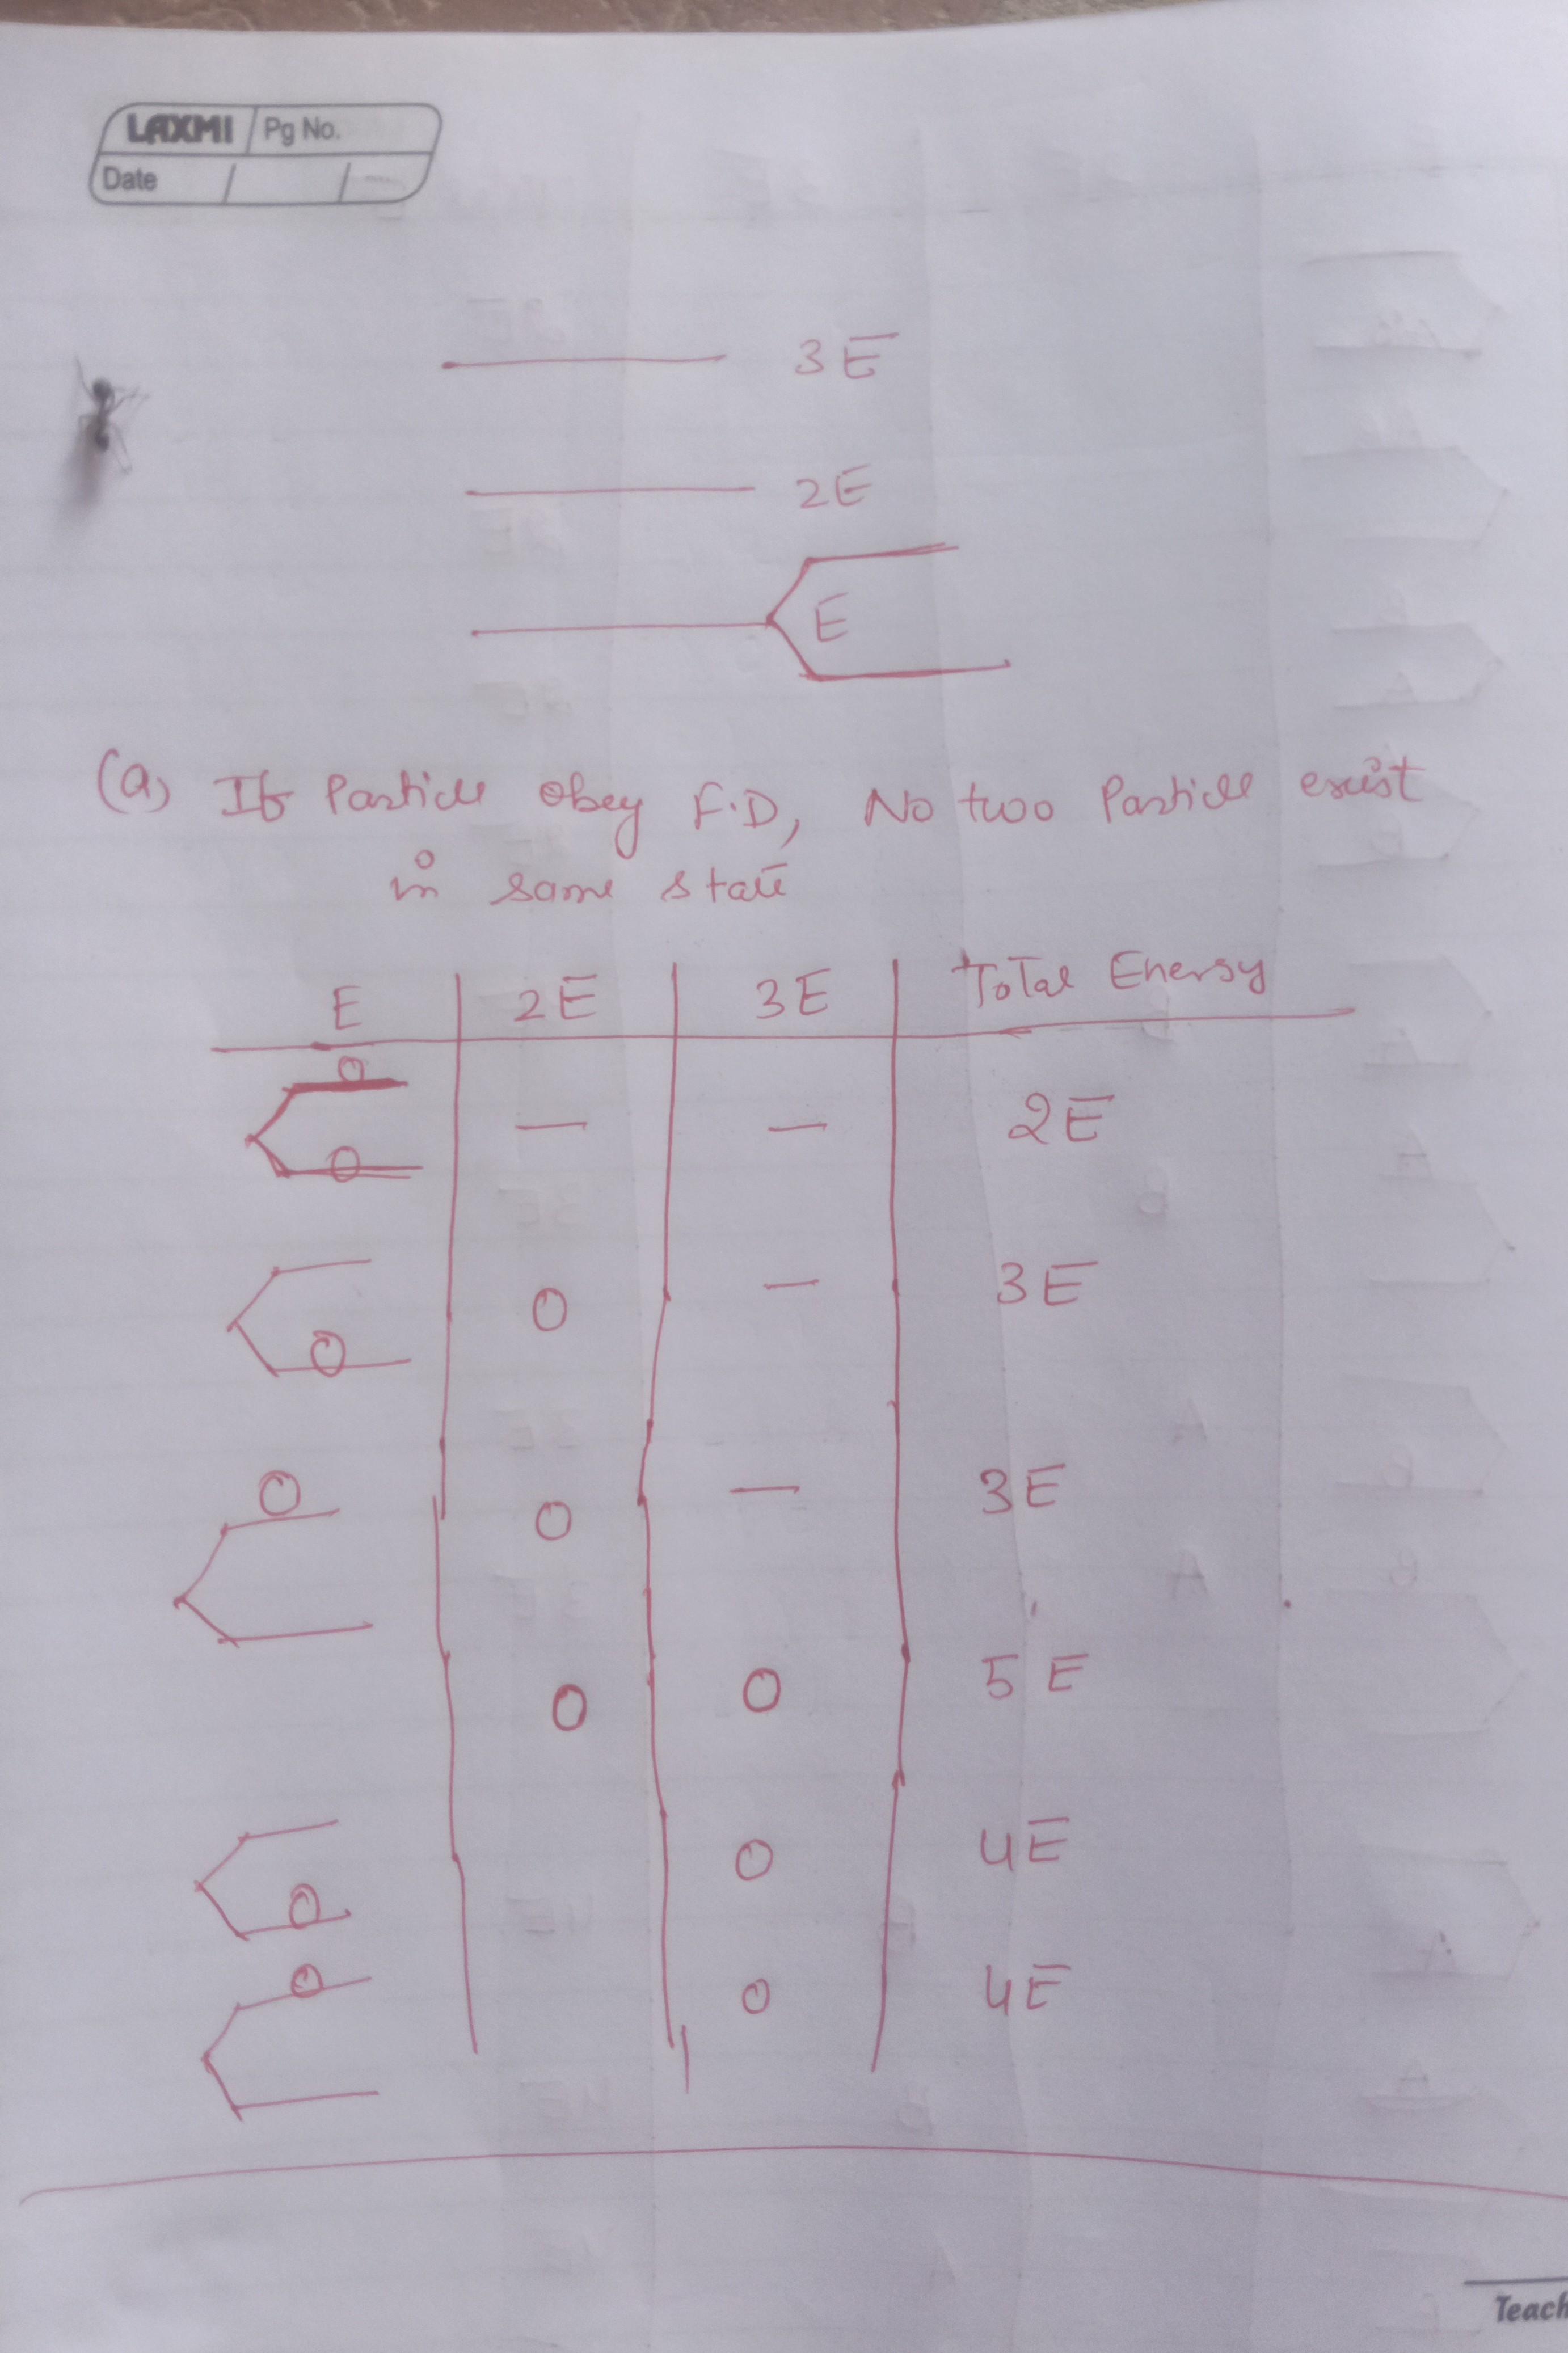 LAXMI Pg No.
Date / /
3E
2E
E
(a) If Particle obey F.D, No two Particle exist
in same state
E 2E 3E Total Energy
O
O — — 2E
O O — 3E
O O — 3E
O O 5E
O O 4E
O O 4E
Teach